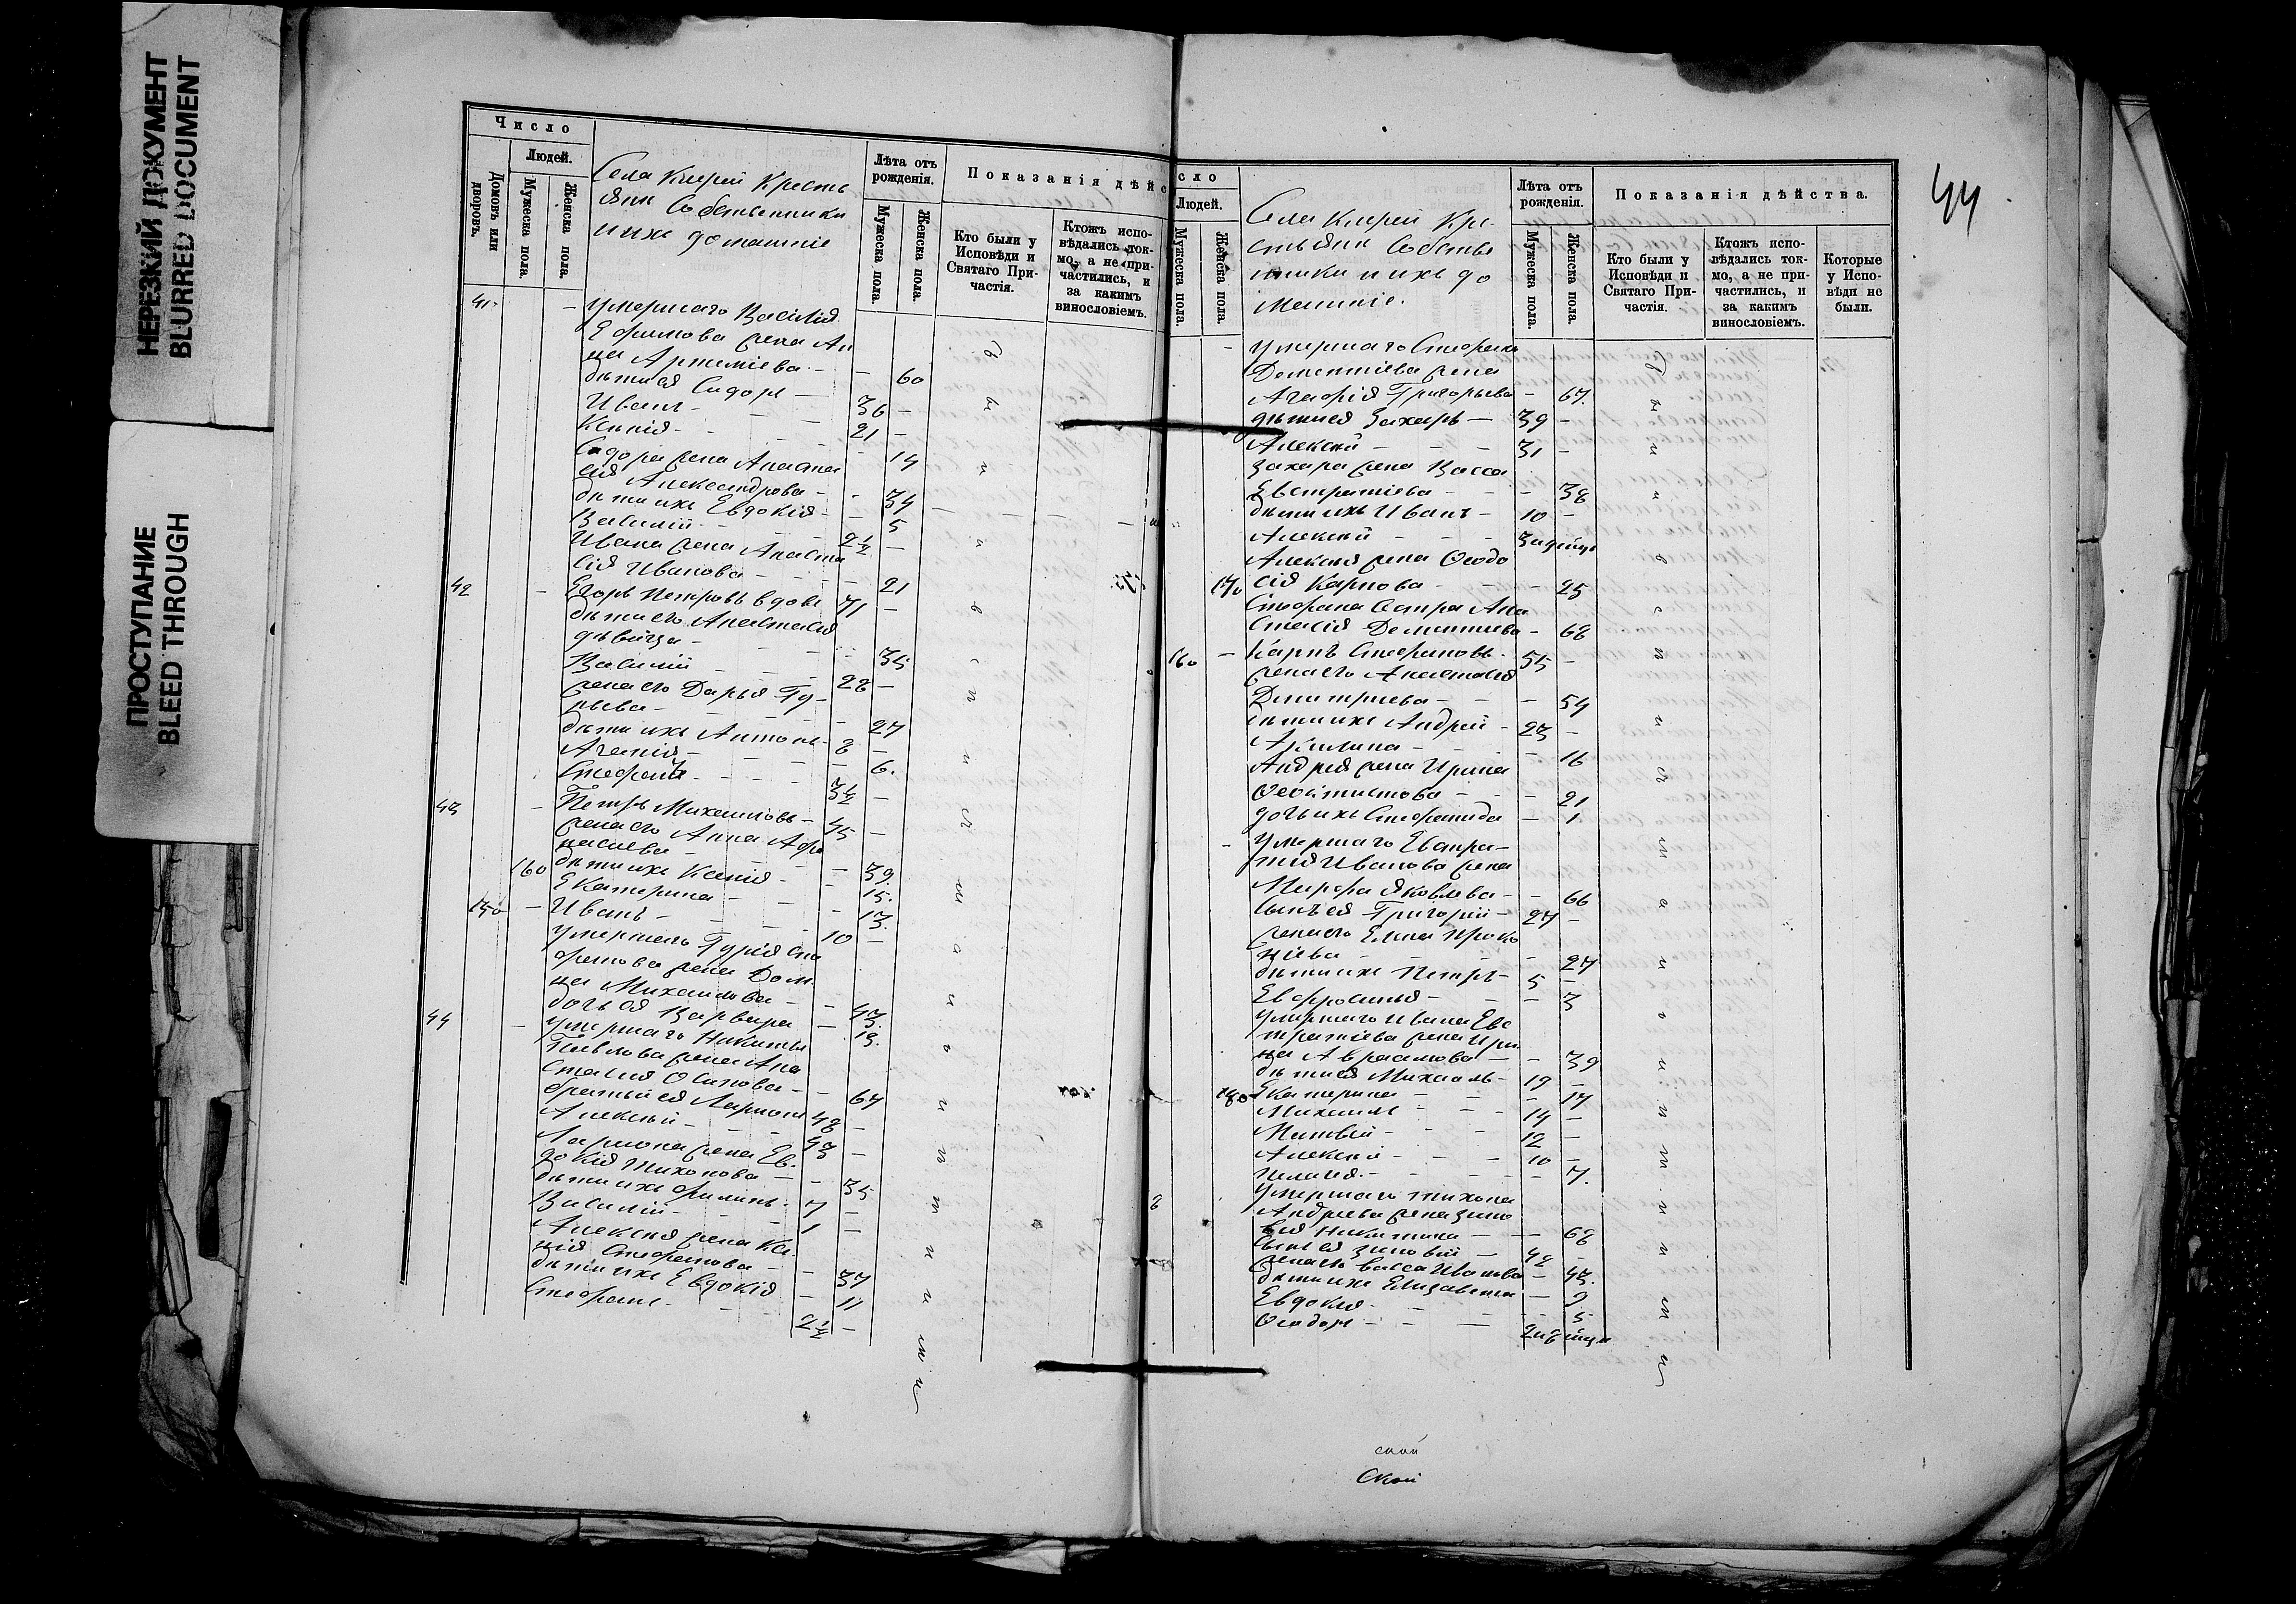 НЕРЕЗКИЙ ДОКУМЕНТ
BLURRED DOCUMENT
ПРОСТУПАНИЕ
BLEED THROUGH
Число
Людей.
Домовъ или дворовъ.
Мужеска пола.
Женска пола.
Села Кирей Кресть
янъ Собственники
и ихъ домашніе
Лѣта отъ рожденія.
Мужеска пола.
Женска пола.
Показанія дѣйс
Кто были у Исповѣди и Святаго Причастія.
Ктожъ исповѣдались токмо, а не причастились, и за какимъ винословіемъ.
41 - умершаго Василія
Ефимова жена Ан
на Артеміева - - 60
дѣти ея Сидоръ - 36 -
Иванъ - - - 21 -
Ксенія - - - - 14
Сидора жена Анаста
сія Александрова - - 34
дѣти ихъ Евдокія - - 5
Василій - - 2½ -
Ивана жена Анаста
сія Иванова - - - 21
42 - Егоръ Петровъ вдовъ 71 -
дѣти его Анастасія
дѣвица - - - 35
Василій - - 28 -
жена его Дарья
- - 27
дѣти ихъ Антонъ - 8 -
Агапія - - - 6.
Стефанъ - - - 3½ -
43 - Петръ Михаиловъ - 45 -
жена его Анна Афа
насиева - - - 39.
160 дѣти ихъ Ксенія - - 15.
Екатерина - - - 13.
150 - Иванъ - - - 10 -
умершаго Гурія
жена Дом
на Михаилова - - 43.
дочь ея Варвара - 13.
44 - умершаго Никиты
Павлова жена Ана
стасия Осипова - - 67
братьи ея Ларионъ 48 -
Алексѣй - - - 43 -
Лариона жена Ев-
докія Тихонова - - 35
дѣти ихъ Филипъ - 7 -
Василій - - - 1 -
Алексѣя жена Ксе
нія Стефанова - - 37
дѣти ихъ Евдокія - 11
Стефанъ - - - 2½ -
были на исповѣди и св. причастии
сло
Людей.
Мужеска пола.
Женска пола.
Села Кирей Кре-
стьянъ Собствен
ники и ихъ до
машніе.
Лѣта отъ рожденія.
Мужеска пола.
Женска пола.
Показанія дѣйства.
Кто были у Исповѣди и Святаго Причастія.
Ктожъ исповѣдались токмо, а не причастились, и за какимъ винословіемъ.
Которые у Исповѣди не были.
44
- умершаго Стефана
Дементіева жена
Агафія Григорьева - 67.
дѣти ея Захаръ - 39 -
Алексѣй - - - 31 -
Захара жена Васса
Евстратіева - - - 38
дѣти ихъ Иванъ - 10 -
Алексѣй - - -
Алексѣя жена Ѳеодо
170 сія Карпова - - - 25
Стефана сестра Ана
стасія Дементиева - 68
160 - Карпъ Стефановъ - 55 -
жена его Анастасія
Димитриева - - - 54
дѣти ихъ Андрей - 23 -
Акилина - - - 16
Андрея жена Ирина
Ѳеоктистова - - - 21
дочь ихъ Стефанида - 1
- умершаго Евстра-
тія Иванова жена
Марѳа Яковлева - - 66
сынъ ея Григорій - 27 -
жена его Елена Проко
піева - - - - 27
дѣти ихъ Петръ - 5 -
Евфросинья - - - 3
умершаго Ивана Евс
тратіева жена Ири
на Авраамова - - 39
дѣти ея Михаилъ - 19 -
180 Екатерина - - - 17
Михаилъ - - - 14 -
Матвѣй - - - 12 -
Алексѣй - - - 10 -
Пелагея - - - 7.
умершаго Тихона
Андреева жена Зино
вия Никитина - - 68
сынъ ея Зиновій - 42 -
жена его Васса Иванова - 43.
дѣти ихъ Елизавета - 9
Евдокия - - - 5
Ѳеодоръ - - -
были на исповѣди и св. причастии
ской
Ской